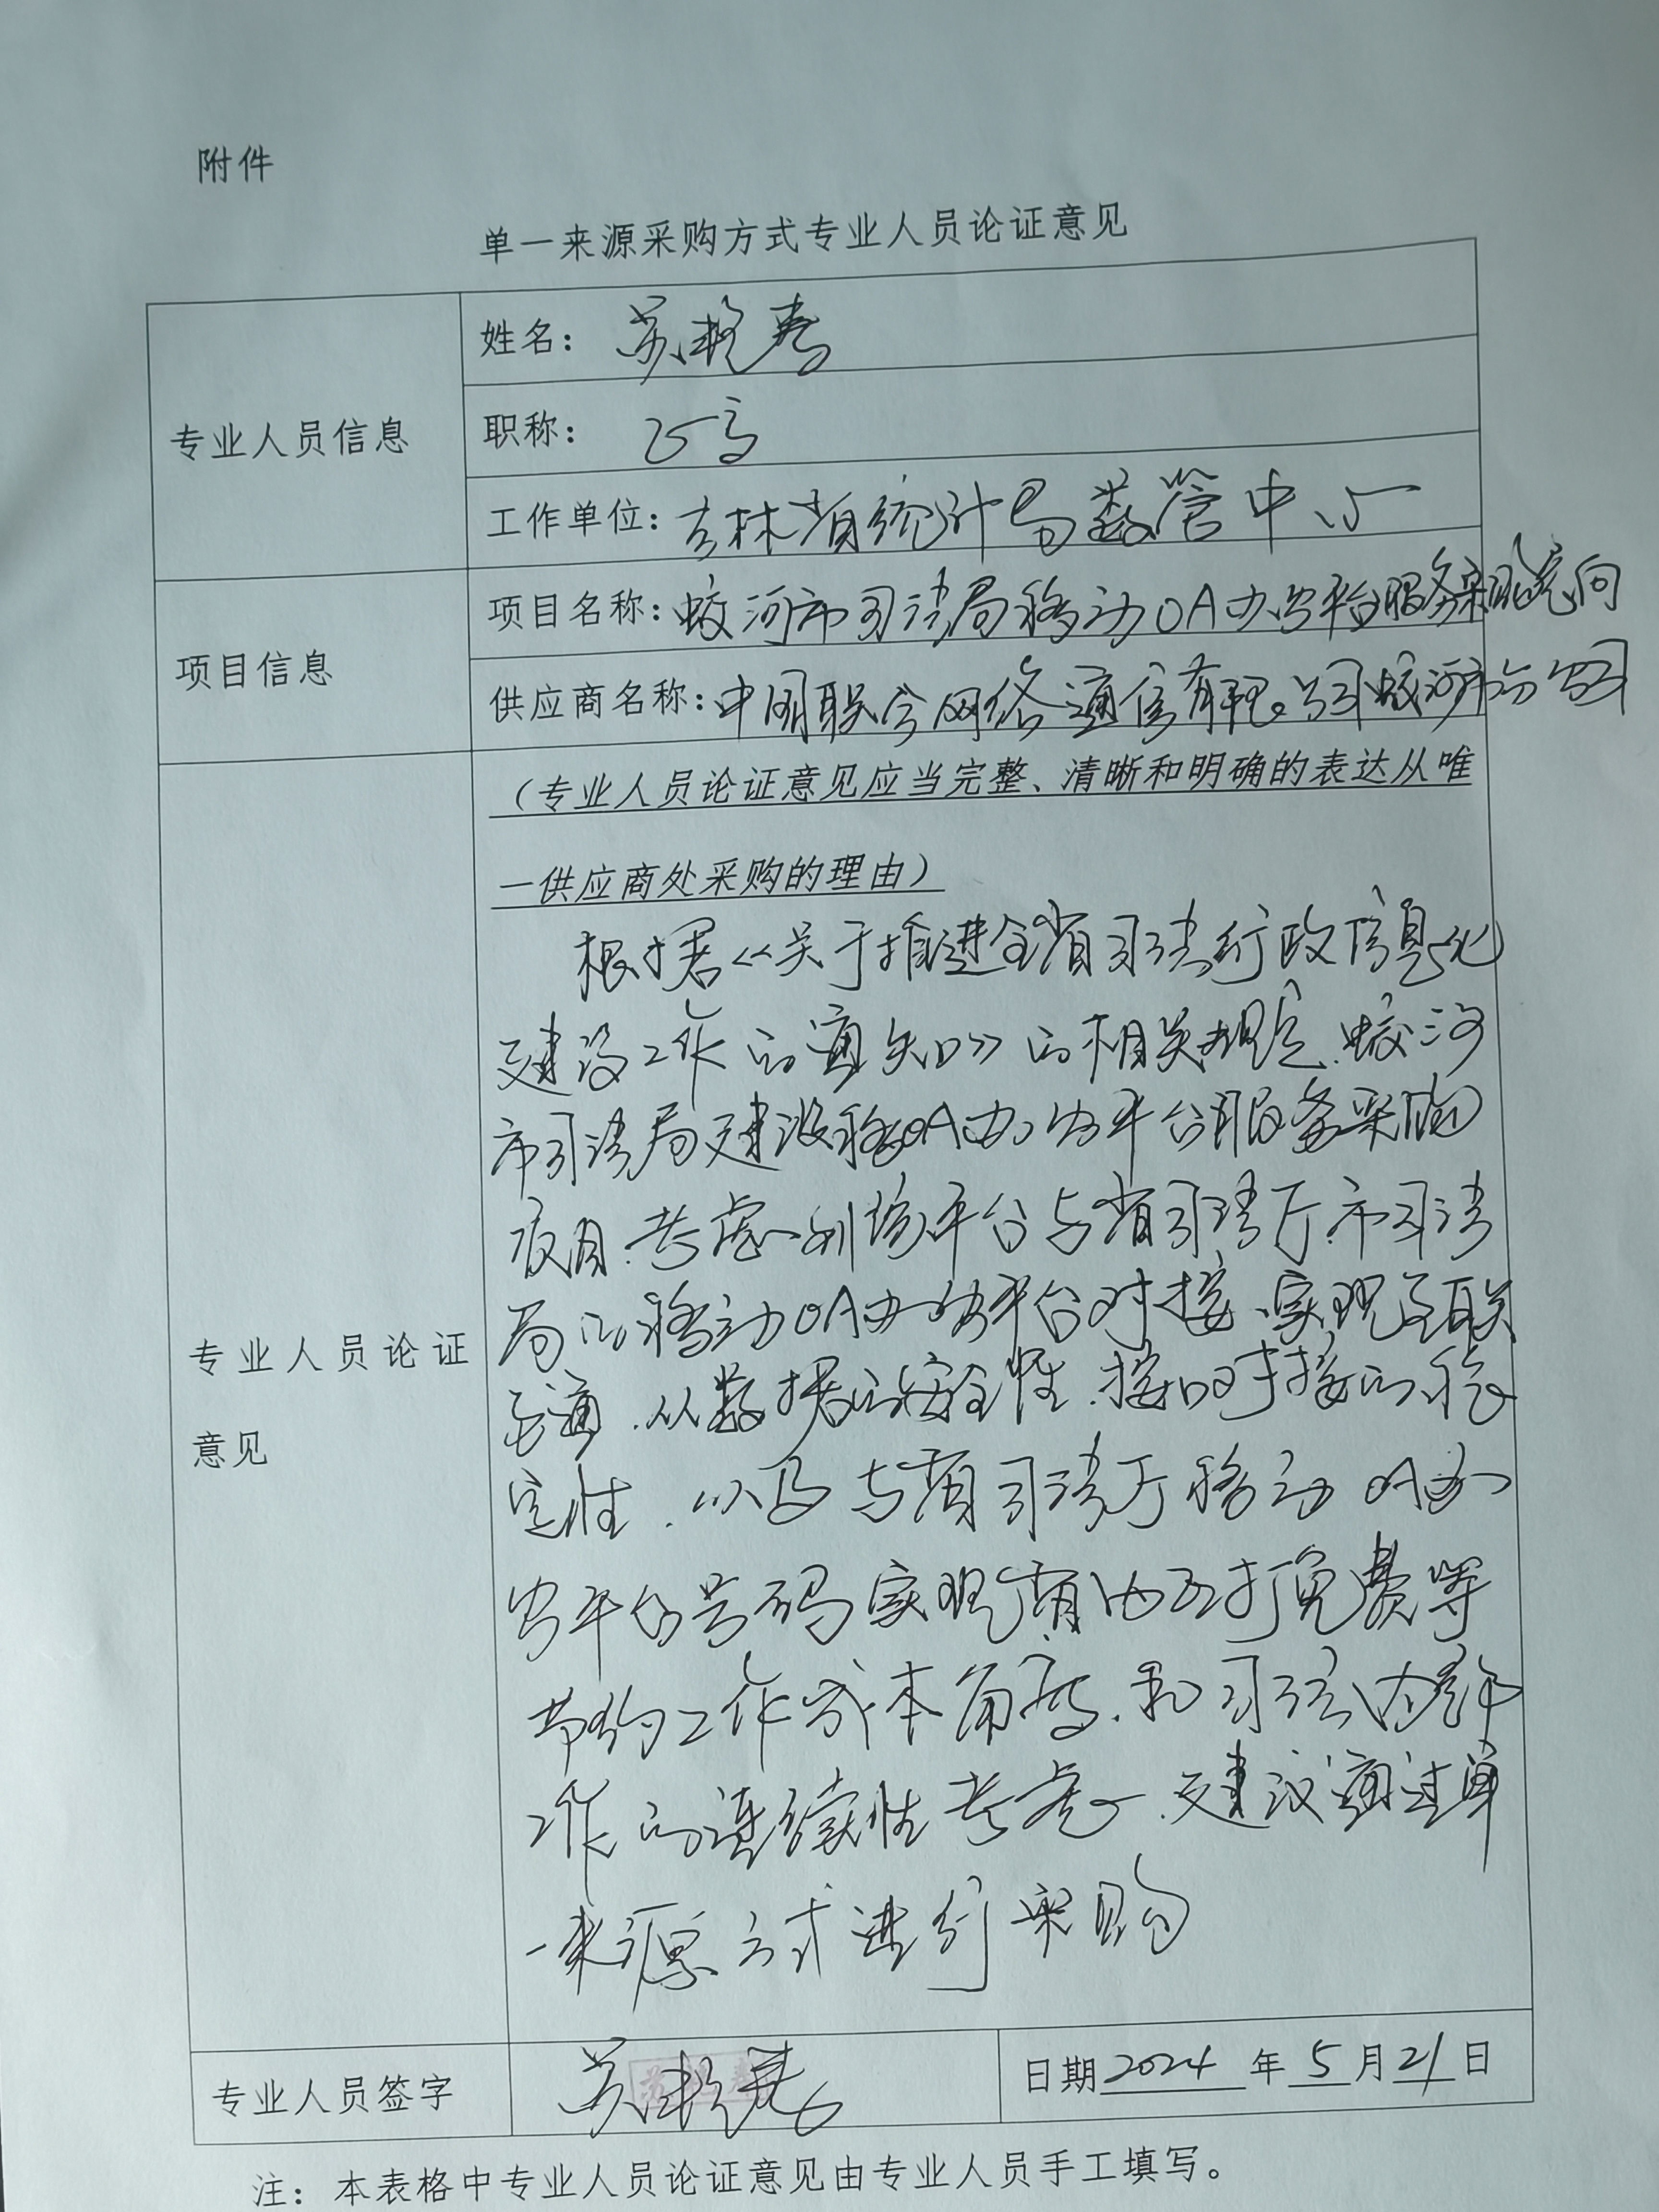 附件
单一来源采购方式专业人员论证意见
专业人员信息
姓名：苏
职称：正高
工作单位：吉林省统计局数管中心
项目信息
项目名称：蛟河市司法局移动OA办公平台服务采购意向
供应商名称：中国联合网络通信有限公司蛟河市分公司
专业人员论证
意见
（专业人员论证意见应当完整、清晰和明确的表达从唯
一供应商处采购的理由）
根据《关于推进全省司法行政信息化
建设工作的通知》的相关规定，蛟河
市司法局建设移动OA办公平台服务采购
项目，考虑到该平台与省司法厅、市司法
局的移动OA办公平台对接、实现互联
互通，从数据的安全性、接口对接的稳
定性，以及与省司法厅移动OA办
公平台号码实现省内互打免费等
节约工作成本角度，和司法内部
工作的连续性考虑，建议通过单
一来源方式进行采购
专业人员签字
苏
日期2024年5月21日
注：本表格中专业人员论证意见由专业人员手工填写。